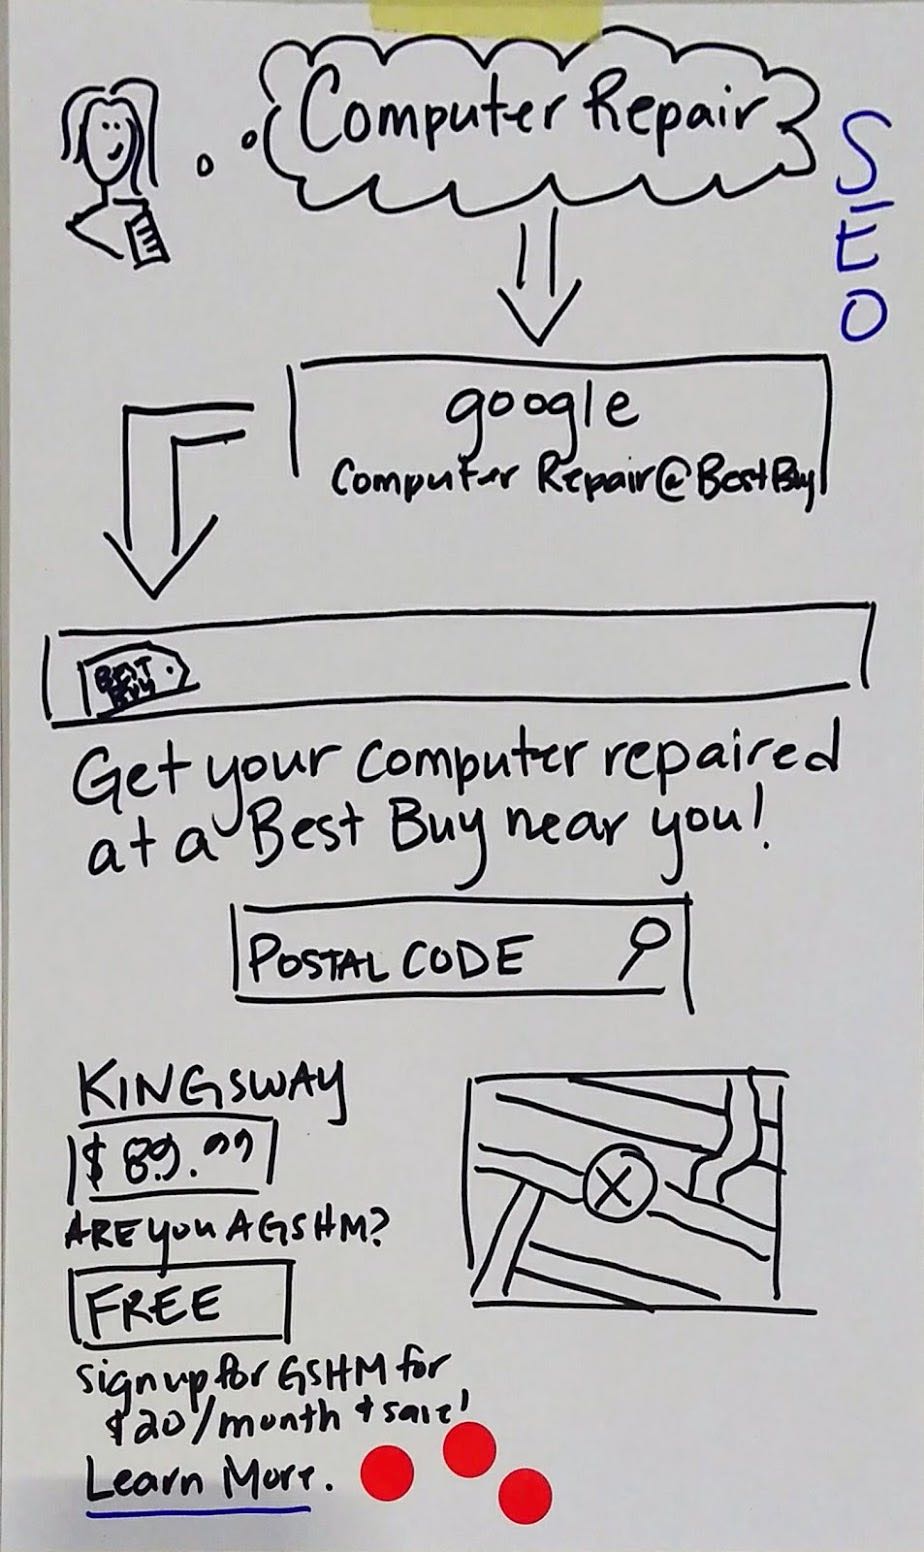 Computer Repair
SEO
google
Computer Repair@BestBuy
BEST
BUY
Get your computer repaired
at a Best Buy near you!
POSTAL CODE
KINGSWAY
$ 89.99
ARE you A GSHM?
FREE
Sign up for GSHM for
$20/month & save!
Learn More.